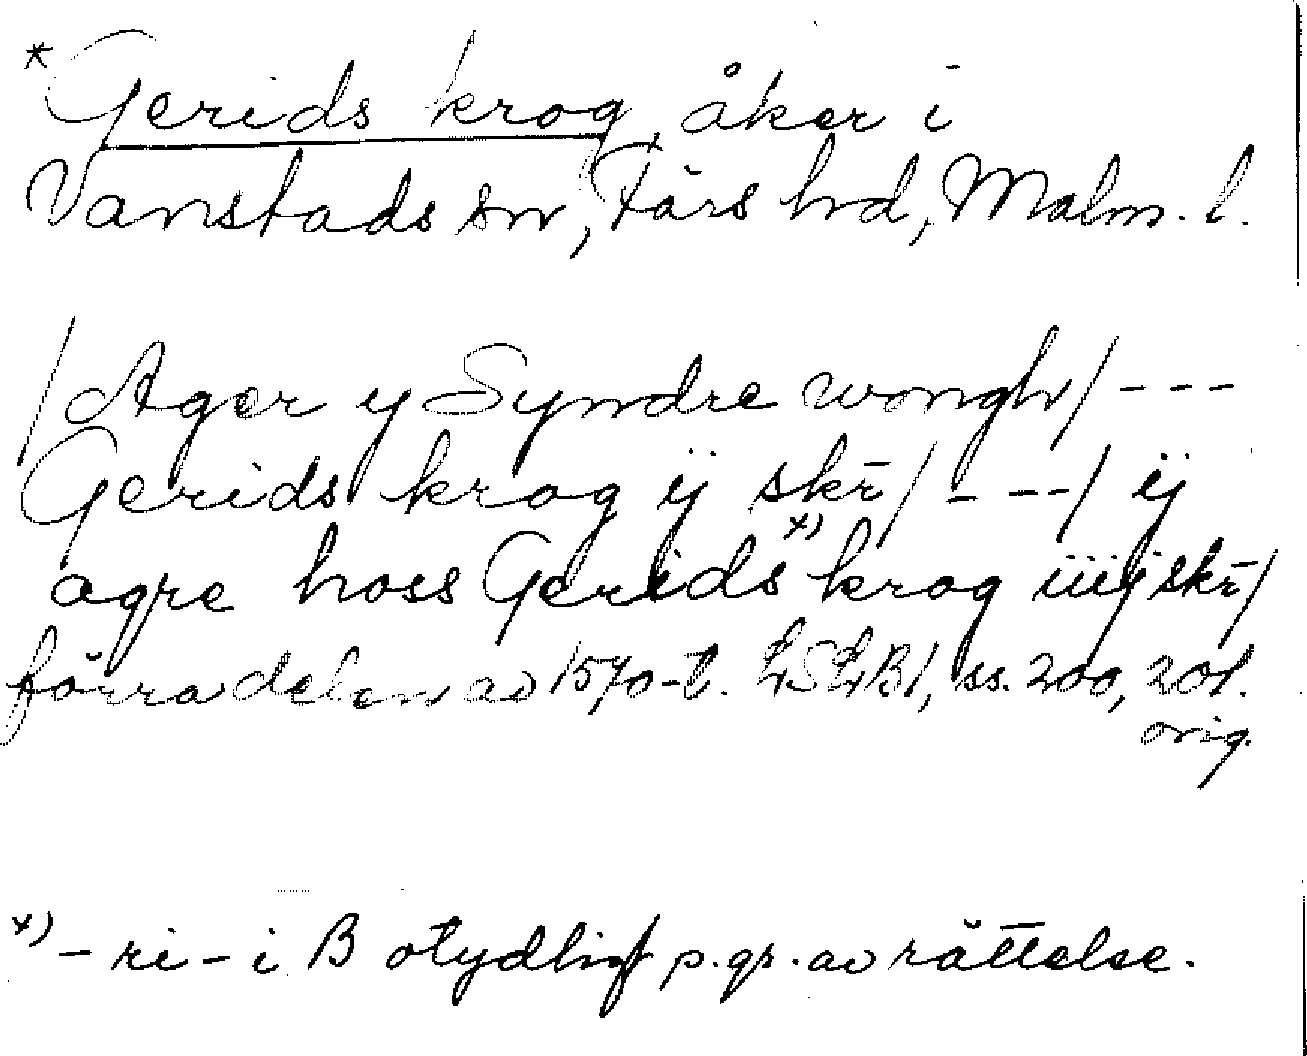 * Gerids krog, åker i
Vanstads sn, Färs hd, Malm. l.
/Ager y Syndre wongh/ ---
Gerids krog ij skr̄/ - --/ ij
agre hoss Gerids x) krog iiij skr̄/
förra delen av 1570-t. LSLB1, ss. 200, 201.
orig.
x) -ri- i B otydligt p.gr. av rättelse.